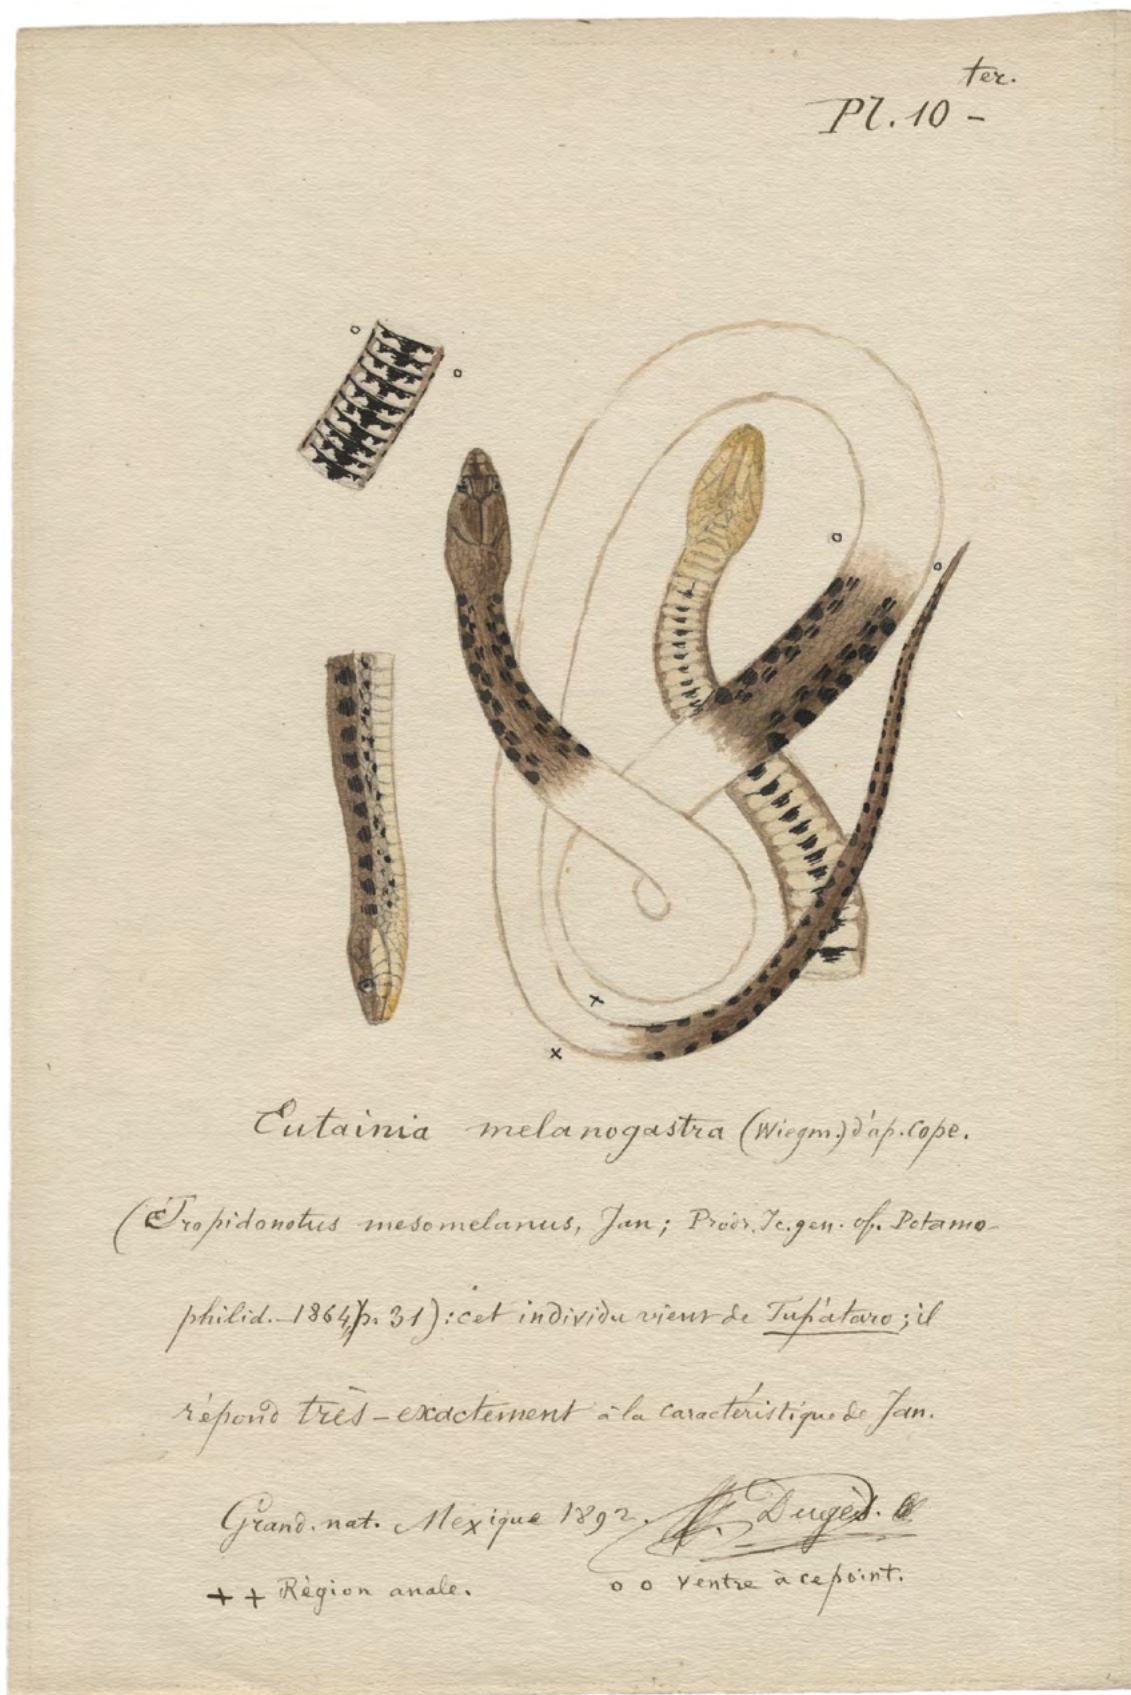 ter.
Pl. 10 -
Eutainia melanogastra (Wiegm.) d'ap. Cope.
(Tropidonotus mesomelanus, Jan; Prodr. Ic. gen. of. Potamo-
philid. - 1864, p. 31): cet individu vient de Tupátaro; il
répond très-exactement à la caractéristique de Jan.
Grand. nat. Mexique 1892. A. Dugès.
+ + Région anale. o o ventre à ce point.